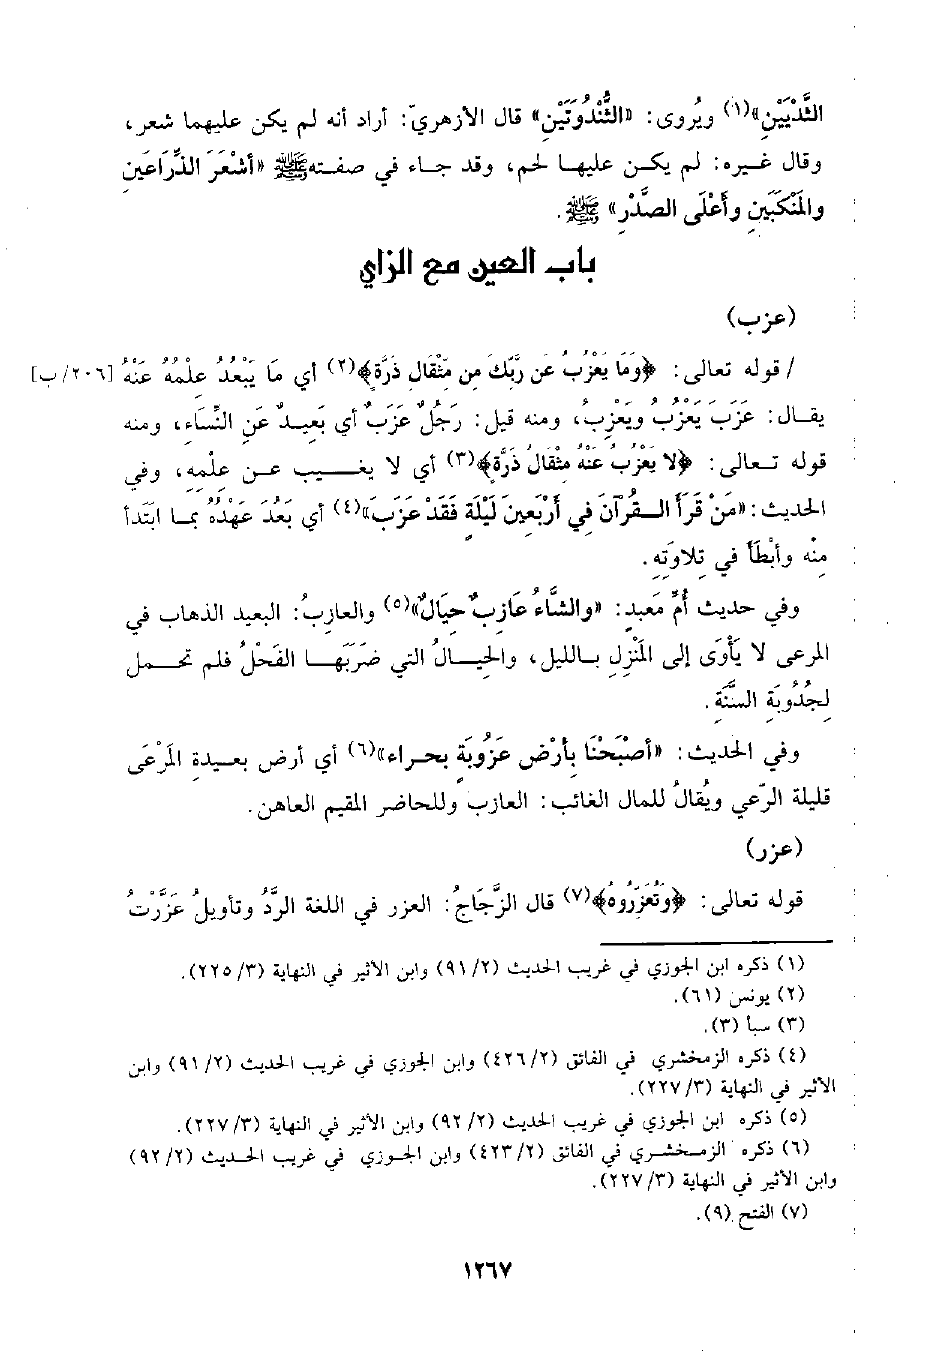 الثَّدْيَيْنِ»(١) ويُروى: «الثُّنْدُوَتَيْنِ» قال الأزهريّ: أراد أنه لم يكن عليهما شعر،
وقال غيره: لم يكن عليها لحم، وقد جاء في صفته ﷺ «أَشْعَرَ الذِّرَاعَينِ
والمَنْكَبَينِ وأَعْلَى الصَّدْرِ» ﷺ.
باب العين مع الزاي
(عزب)
/ قوله تعالى: ﴿وَمَا يَعْزُبُ عَن رَّبِّكَ مِن مِّثْقَالِ ذَرَّةٍ﴾(٢) أي مَا يَبْعُدُ علمُهُ عَنْهُ [٢٠٦/ب]
يقال: عَزَبَ يَعْزُبُ ويَعْزِبُ، ومنه قيل: رَجُلٌ عَزَبٌ أي بَعِيدٌ عَنِ النِّسَاءِ، ومنه
قوله تعالى: ﴿لا يَعْزُبُ عَنْهُ مِثْقَالُ ذَرَّةٍ﴾(٣) أي لا يغيب عن علمِه، وفي
الحديث: «مَنْ قَرَأَ القُرآنَ فِي أَرْبَعينَ لَيْلَةٍ فَقَدْ عَزَبَ»(٤) أي بَعُدَ عَهْدُهُ بما ابتَدأَ
مِنْه وأَبْطَأَ في تِلاوَتِهِ.
وفي حديث أُمِّ مَعبدٍ: «والشَّاءُ عَازبٌ حِيَالٌ»(٥) والعازبُ: البعيد الذهاب في
المرعى لا يَأْوَى إلى المَنْزِلِ بالليل، والحِيالُ التي ضَرَبَها الفَحْلُ فلم تحمل
لِجُدُوبَةِ السَّنَّةِ.
وفي الحديث: «أَصْبَحْنَا بأَرْضٍ عَزُوبَةٍ بحراء»(٦) أي أرض بعيدةِ المَرْعَى
قليلة الرّعي ويُقالُ للمال الغائب: العازب وللحاضر المقيم العاهن.
(عزر)
قوله تعالى: ﴿وَتُعَزِّرُوهُ﴾(٧) قال الزَّجَاجُ: العزر في اللغة الرَّدُّ وتأويلُ عَزَّرْتُ
(١) ذكره ابن الجوزي في غريب الحديث (٢/٩١) وابن الأثير في النهاية (٣/٢٢٥).
(٢) يونس (٦١).
(٣) سبأ (٣).
(٤) ذكره الزمخشري في الفائق (٢/٤٢٦) وابن الجوزي في غريب الحديث (٢/٩١) وابن
الأثير في النهاية (٣/٢٢٧).
(٥) ذكره ابن الجوزي في غريب الحديث (٢/٩٢) وابن الأثير في النهاية (٣/٢٢٧).
(٦) ذكره الزمخشري في الفائق (٢/٤٢٣) وابن الجوزي في غريب الحديث (٢/٩٢)
وابن الأثير في النهاية (٣/٢٢٧).
(٧) الفتح (٩).
١٢٦٧